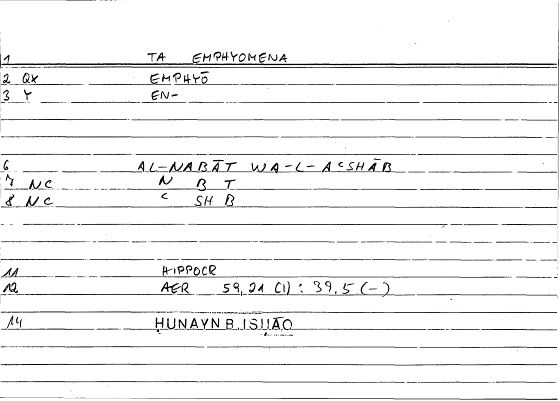 1 TA EMPHYOMENA
2 QX EMPHYŌ
3 Y EN-
6 AL-NABĀT WA-L-AʿSHĀB
7 NC N B T
8 NC ʿ SH B
11 HIPPOCR
12 AER 59,21 (1) : 39,5 (-)
14 ḤUNAYN B. ISḤĀQ